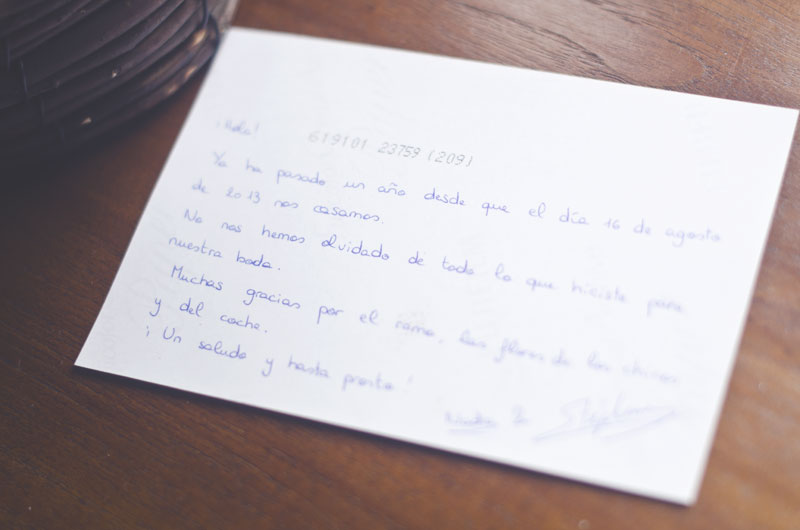 ¡Hola!
619101 23759 (209)
Ya ha pasado un año desde que el día 16 de agosto
de 2013 nos casamos.
No nos hemos olvidado de todo lo que hiciste para
nuestra boda.
Muchas gracias por el ramo, las flores de los chicos
y del coche.
¡Un saludo y hasta pronto!
&